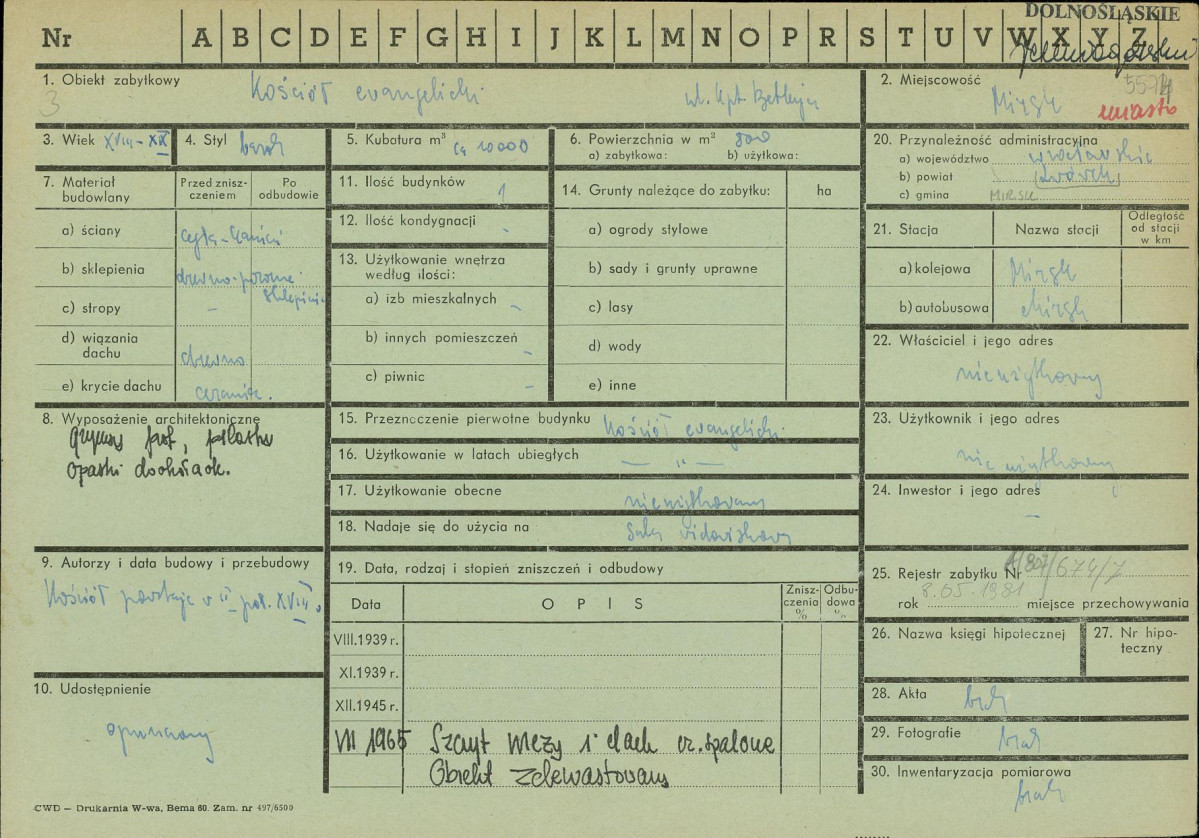 DOLNOŚLĄSKIE
Nr A B C D E F G H I J K L M N O P R S T U V W X Y Z
1. Obiekt zabytkowy Kościół evangelicki ul. kpt. Betleja
3
2. Miejscowość Mirsk 5574
miasto
3. Wiek XVIII-XIX
4. Styl barok
5. Kubatura m³ ca 10000
6. Powierzchnia w m² 800
a) zabytkowa: b) użytkowa:
20. Przynależność administracyjna
a) województwo wrocławskie
b) powiat Lwówek
c) gmina MIRSK
7. Materiał budowlany
Przed zniszczeniem
Po odbudowie
a) ściany cegła-kamień
b) sklepienia drewno-pozorne
sklepienie
c) stropy -
d) wiązania dachu drewno
e) krycie dachu ceramiczne.
11. Ilość budynków 1
12. Ilość kondygnacji -
13. Użytkowanie wnętrza według ilości:
a) izb mieszkalnych -
b) innych pomieszczeń -
c) piwnic -
14. Grunty należące do zabytku: ha
a) ogrody stylowe
b) sady i grunty uprawne
c) lasy
d) wody
e) inne
21. Stacja Nazwa stacji Odległość od stacji w km
a) kolejowa Mirsk
b) autobusowa Mirsk
22. Właściciel i jego adres
nieużytkowany
8. Wyposażenie architektoniczne
gzyms prof., pilastry
opaski dookoła ok.
15. Przeznoczenie pierwotne budynku Kościół evangelicki
16. Użytkowanie w latach ubiegłych — „ —
17. Użytkowanie obecne nieużytkowany
18. Nadaje się do użycia na Sala widowiskowa
23. Użytkownik i jego adres
nie użytkowany
24. Inwestor i jego adres
-
9. Autorzy i data budowy i przebudowy
Kościół powstaje w II poł. XVIII w.
19. Data, rodzaj i stopień zniszczeń i odbudowy
Data OPIS Zniszczenia % Odbudowa %
VIII.1939 r.
XI.1939 r.
XII.1945 r.
VII 1965 Szczyt wieży i dach cz. spalone
Obiekt zdewastowany
25. Rejestr zabytku Nr A/807/674/J
8.05.1981
rok miejsce przechowywania
26. Nazwa księgi hipotecznej
27. Nr hipoteczny
10. Udostępnienie
opuszczony
28. Akta brak
29. Fotografie brak
30. Inwentaryzacja pomiarowa
brak
CWD — Drukarnia W-wa, Bema 60. Zam. nr 497/6500